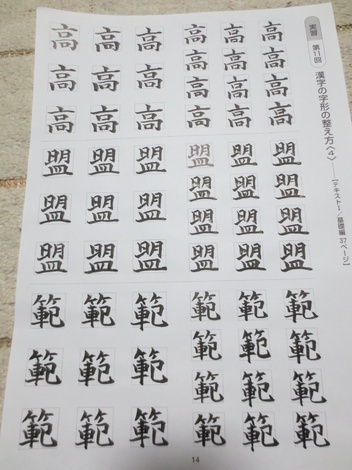 実習 第11回 漢字の字形の整え方〈4〉――【テキストⅠ／基礎編 37ページ】
高高高高
高高高高
高高高高
高高高
高高高
高高高
盟盟盟盟
盟盟盟盟
盟盟盟盟
盟盟盟
盟盟盟
盟盟盟
範範範範
範範範範
範範範範
範範範
範範範
範範範
14